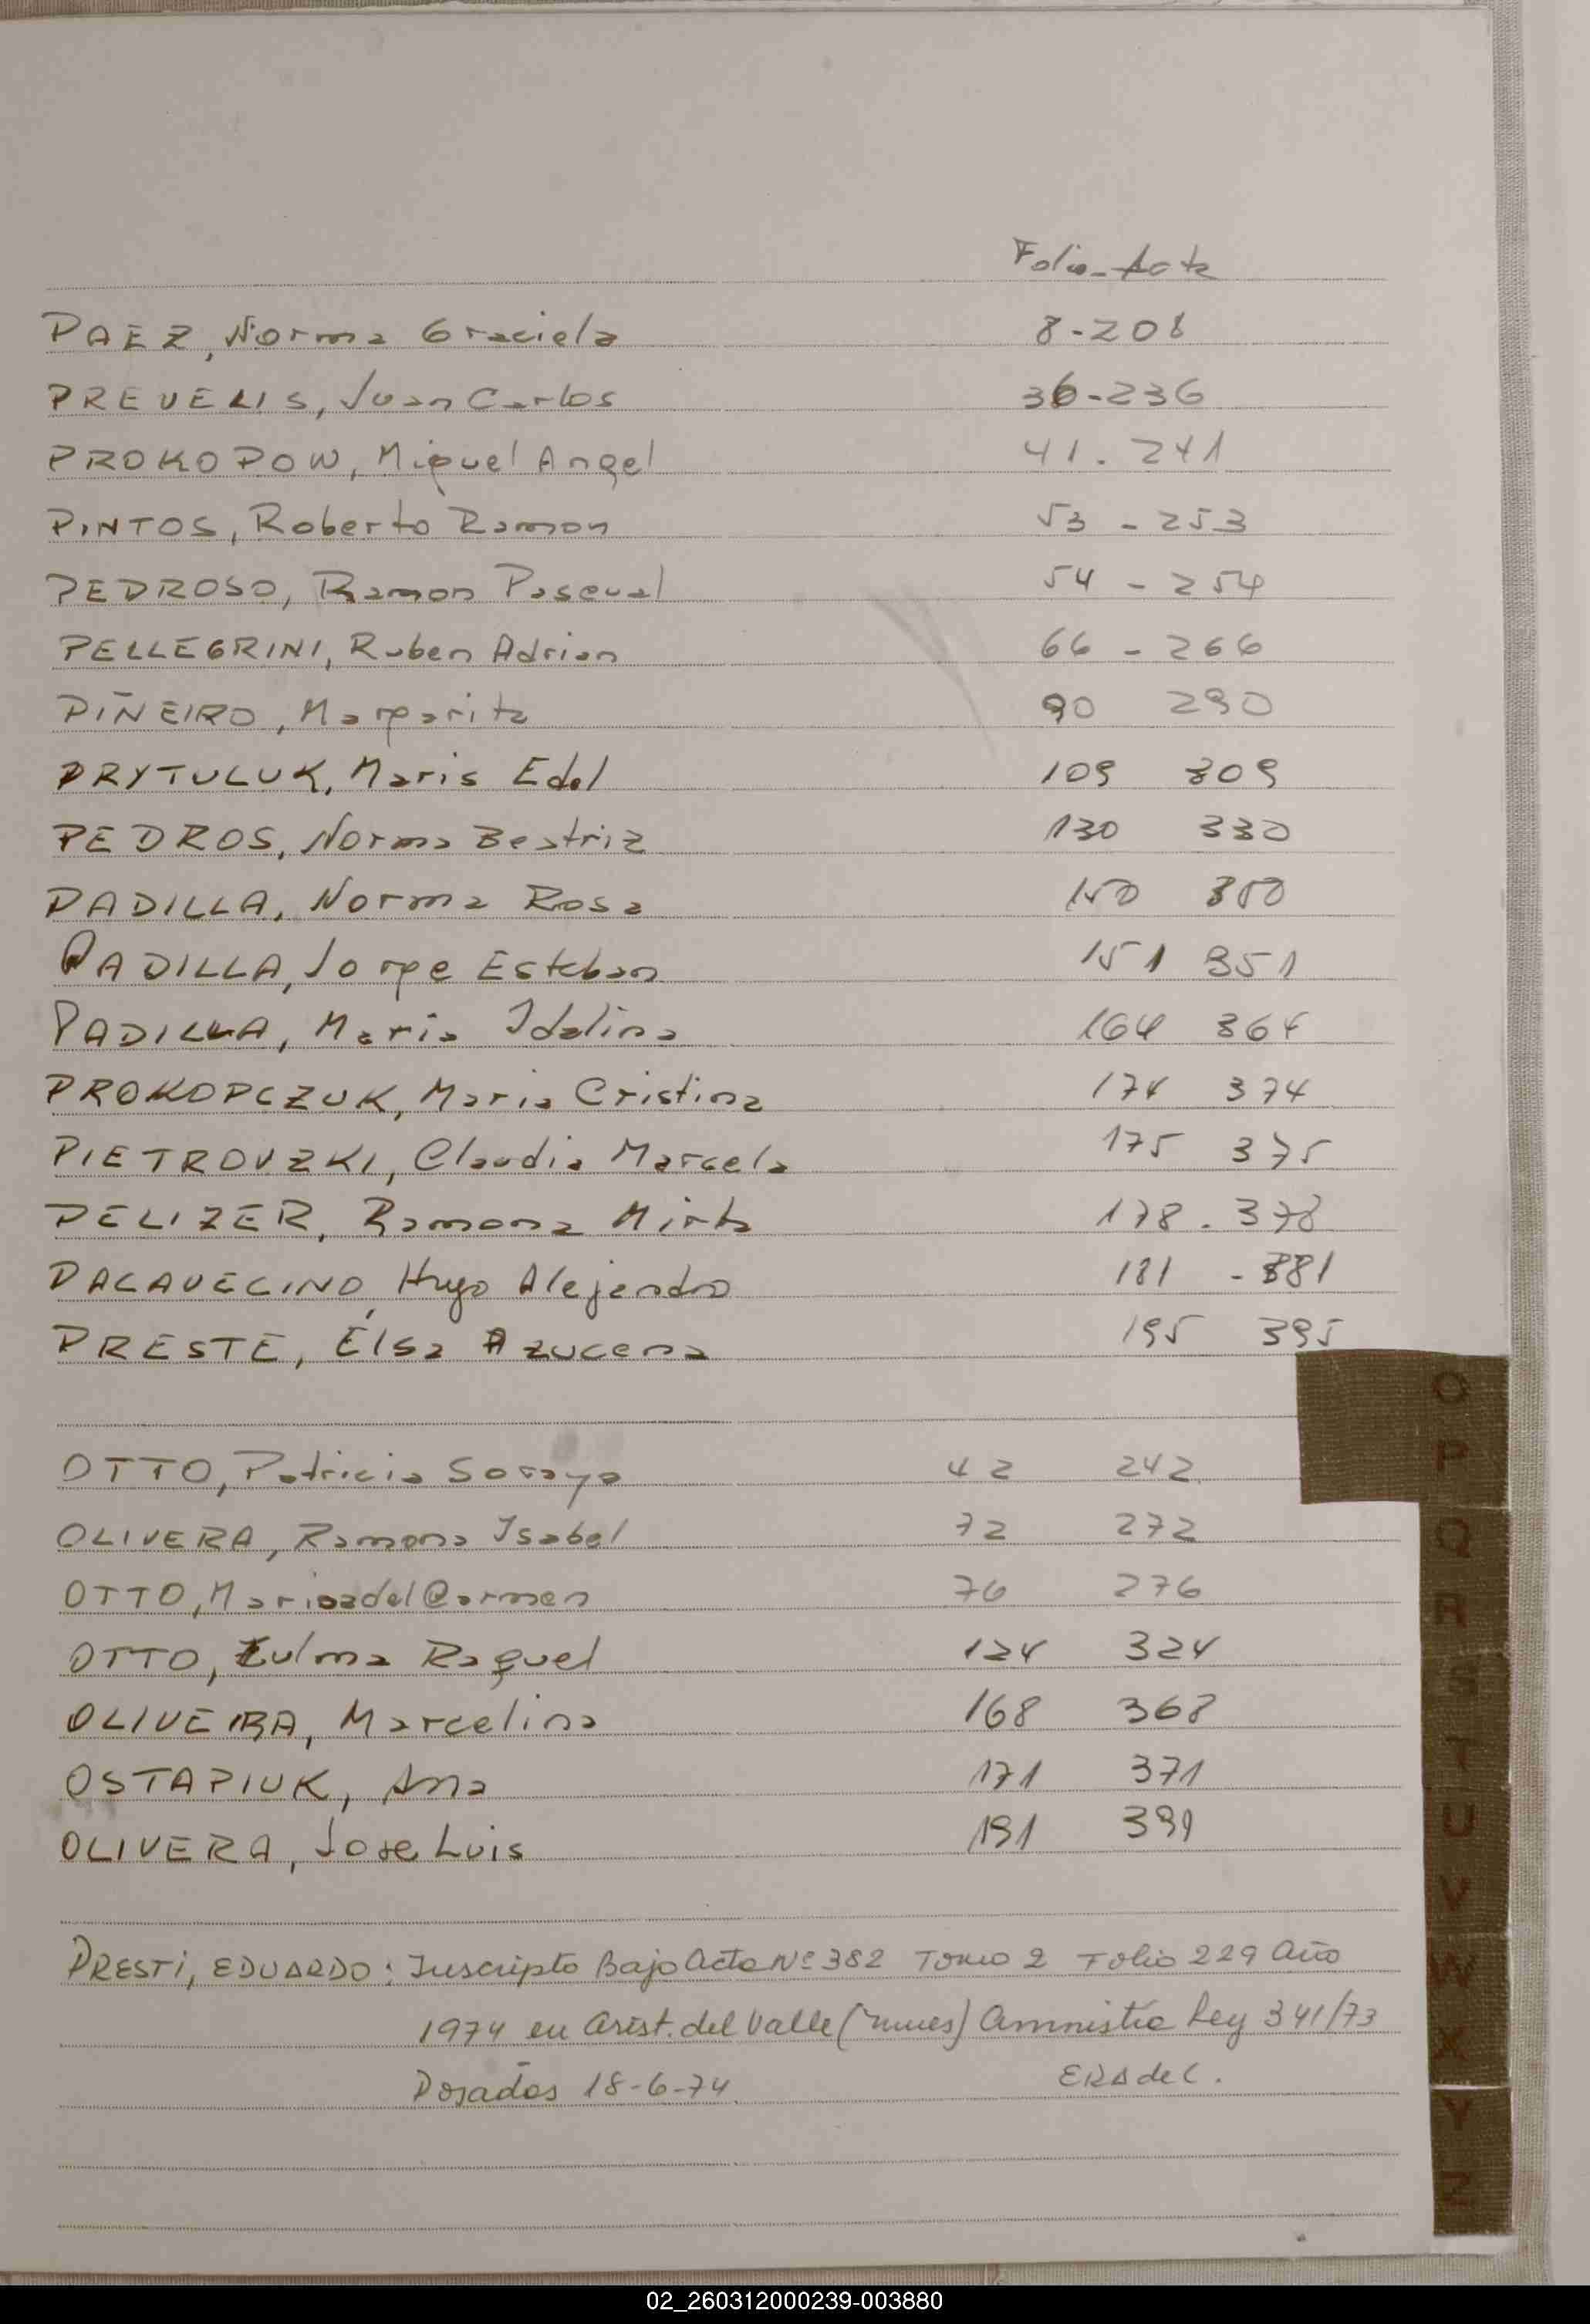 Folio - Acta
PAEZ, Norma Graciela 8-208
PREVELIS, Juan Carlos 36-236
PROKOPOW, Miguel Angel 41. 241
PINTOS, Roberto Ramon 53 - 253
PEDROSO, Ramon Pascual 54 - 254
PELLEGRINI, Ruben Adrian 66 - 266
PIÑEIRO, Margarita 90 290
PRYTULUK, Maris Edel 109 309
PEDROS, Norma Beatriz 130 330
PADILLA, Norma Rosa 150 350
PADILLA, Jorge Esteban 151 351
PADILLA, Maria Idalina 164 364
PROKOPCZUK, Maria Cristina 174 374
PIETROVZKI, Claudia Marcela 175 375
PELIZER, Ramona Mirta 178. 378
PALAVECINO, Hugo Alejandro 181 - 381
PRESTE, Elsa Azucena 195 395
OTTO, Patricia Soraya 42 242
OLIVERA, Ramona Isabel 72 272
OTTO, Maria del Carmen 76 276
OTTO, Zulma Raquel 124 324
OLIVEIRA, Marcelina 168 368
OSTAPIUK, Ana 171 371
OLIVERA, Jose Luis 191 391
PRESTI, EDUARDO: Inscripto Bajo Acta Nº 382 Tomo 2 Folio 229 Año
1974 en Arist. del Valle (Mnes) Amnistía Ley 341/73
Posadas 18-6-74
O
P
Q
R
S
T
U
V
W
X
Y
Z
02_260312000239-003880